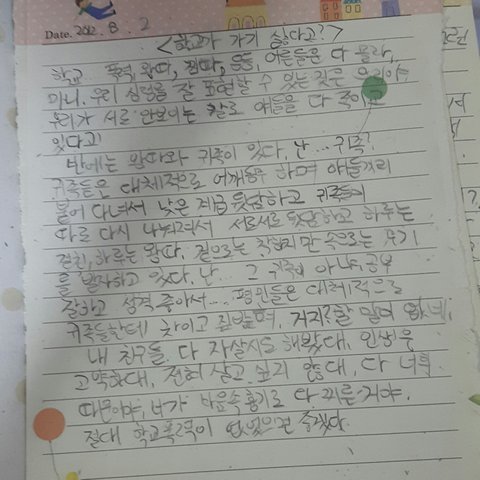 Date. 2012. 8. 2
<학교가 가기 싫다고?>
학교 폭력, 왕따, 전따, 등등, 어른들은 다 몰라,
아니, 우리 심정을 잘 표현할 수 있는 것은 우리야
우리가 서로 안보이는 칼로 애들을 다 죽이고
있다고!
반에는 왕따와 귀족이 있다. 난... 귀족?
귀족들은 대체적으로 어깨동무 하며 애들끼리
붙어 다녀서 낮은 계급 뒷담하고 귀족들이
따로 다시 나뉘어져서 서로서로 뒷담하고 하루는
절친, 하루는 왕따. 겉으로는 착하지만 속으로는 무기
를 발사하고 있다. 난... 그 귀족이 아냐, 공부
잘하고 성격 좋아서... 평민들은 대체적으로
귀족들한테 치이고 짓밟혀, 거지? 할 말이 없네,
내 친구들 다 자살시도 해봤대, 인생은
고약하대, 전혀 살고 싶지 않대, 다 너희
때문이야, 너가 마음속 흉기로 다 찌른거야,
절대 학교폭력이 없었으면 좋겠다.